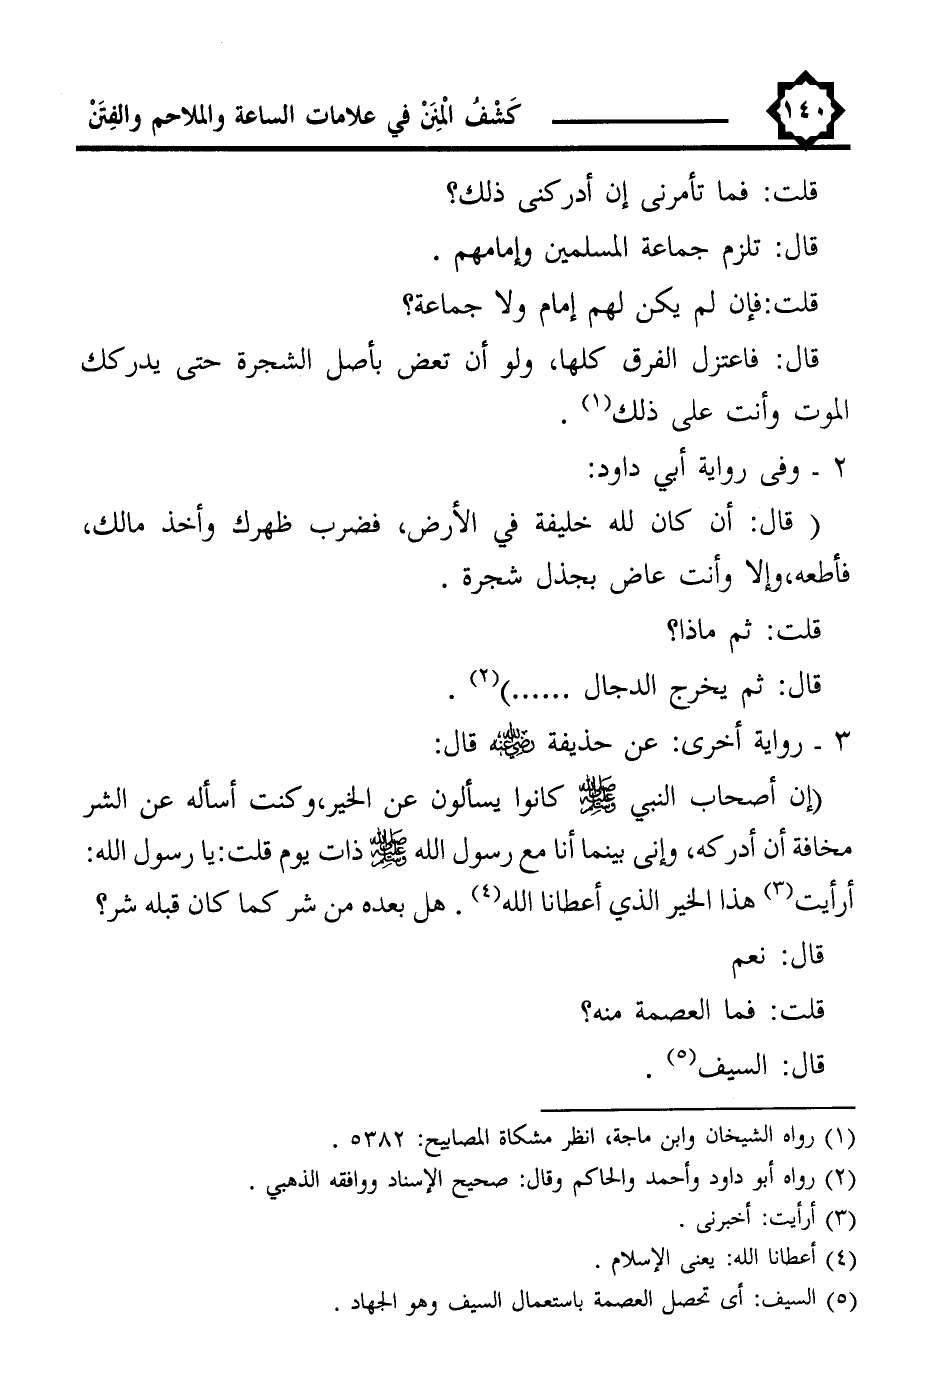 ١٤٠ كَشْفُ الْمِنَنْ في علامات الساعة والملاحم والفِتَنْ
قلت: فما تأمرنى إن أدركنى ذلك؟
قال: تلزم جماعة المسلمين وإمامهم .
قلت:فإن لم يكن لهم إمام ولا جماعة؟
قال: فاعتزل الفرق كلها، ولو أن تعض بأصل الشجرة حتى يدركك
الموت وأنت على ذلك(١) .
٢ ـ وفى رواية أبي داود:
( قال: أن كان لله خليفة في الأرض، فضرب ظهرك وأخذ مالك،
فأطعه،وإلا وأنت عاض بجذل شجرة .
قلت: ثم ماذا؟
قال: ثم يخرج الدجال ......)(٢) .
٣ ـ رواية أخرى: عن حذيفة رضي الله عنه قال:
(إن أصحاب النبي ﷺ كانوا يسألون عن الخير،وكنت أسأله عن الشر
مخافة أن أدركه، وإنى بينما أنا مع رسول الله ﷺ ذات يوم قلت:يا رسول الله:
أرأيت(٣) هذا الخير الذي أعطانا الله(٤) . هل بعده من شر كما كان قبله شر؟
قال: نعم
قلت: فما العصمة منه؟
قال: السيف(٥) .
(١) رواه الشيخان وابن ماجة، انظر مشكاة المصابيح: ٥٣٨٢ .
(٢) رواه أبو داود وأحمد والحاكم وقال: صحيح الإسناد ووافقه الذهبي .
(٣) أرأيت: أخبرنى .
(٤) أعطانا الله: يعنى الإسلام .
(٥) السيف: أى تحصل العصمة باستعمال السيف وهو الجهاد .